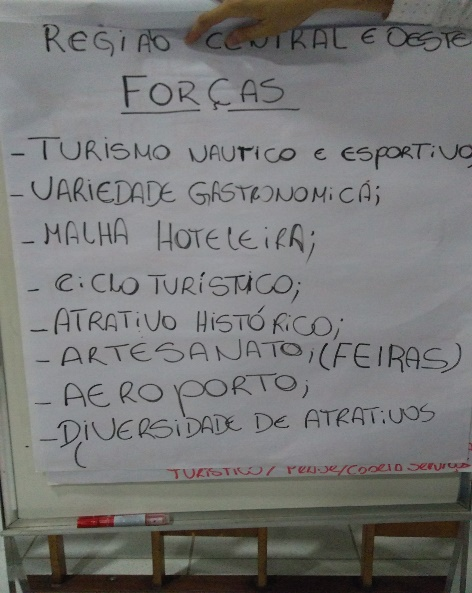 REGIÃO CENTRAL E OESTE
FORÇAS
- TURISMO NAUTICO E ESPORTIVO
- VARIEDADE GASTRONOMICA;
- MALHA HOTELEIRA;
- CICLO TURÍSTICO;
- ATRATIVO HISTÓRICO;
- ARTESANATO; (FEIRAS)
- AEROPORTO;
- DIVERSIDADE DE ATRATIVOS
(
TURISTICO /